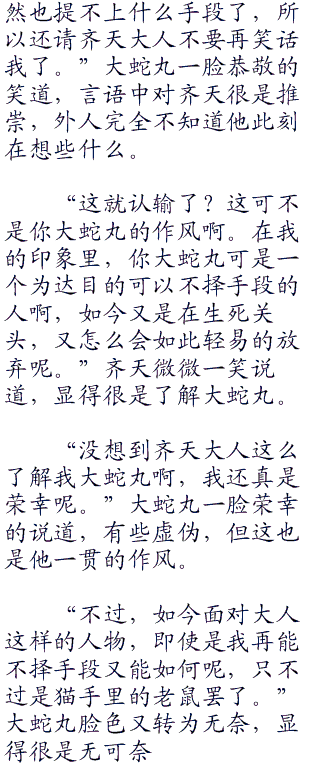 然也提不上什么手段了，所
以还请齐天大人不要再笑话
我了。”大蛇丸一脸恭敬的
笑道，言语中对齐天很是推
崇，外人完全不知道他此刻
在想些什么。
“这就认输了？这可不
是你大蛇丸的作风啊。在我
的印象里，你大蛇丸可是一
个为达目的可以不择手段的
人啊，如今又是在生死关
头，又怎么会如此轻易的放
弃呢。”齐天微微一笑说
道，显得很是了解大蛇丸。
“没想到齐天大人这么
了解我大蛇丸啊，我还真是
荣幸呢。”大蛇丸一脸荣幸
的说道，有些虚伪，但这也
是他一贯的作风。
“不过，如今面对大人
这样的人物，即使是我再能
不择手段又能如何呢，只不
过是猫手里的老鼠罢了。”
大蛇丸脸色又转为无奈，显
得很是无可奈